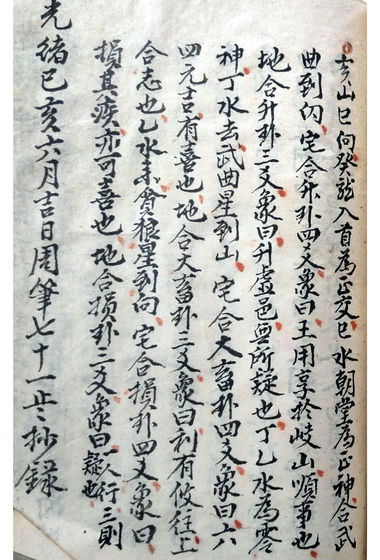 亥山巳向癸龍入首為正交巳水朝堂為正神合武
曲到向宅合升卦四爻象曰王用享於岐山順事也
地合升卦三爻象曰升虛邑無所疑也丁乙水為零
神丁水去武曲星到山宅合大畜卦四爻象曰六
四元吉有喜也地合大畜卦三爻象曰利有攸往上
合志也乙水來貪狼星到向宅合損卦四爻象曰
損其疾亦可喜也地合損卦三爻象曰一人行三則疑也
光緒己亥六月吉日周筆七十一止抄錄